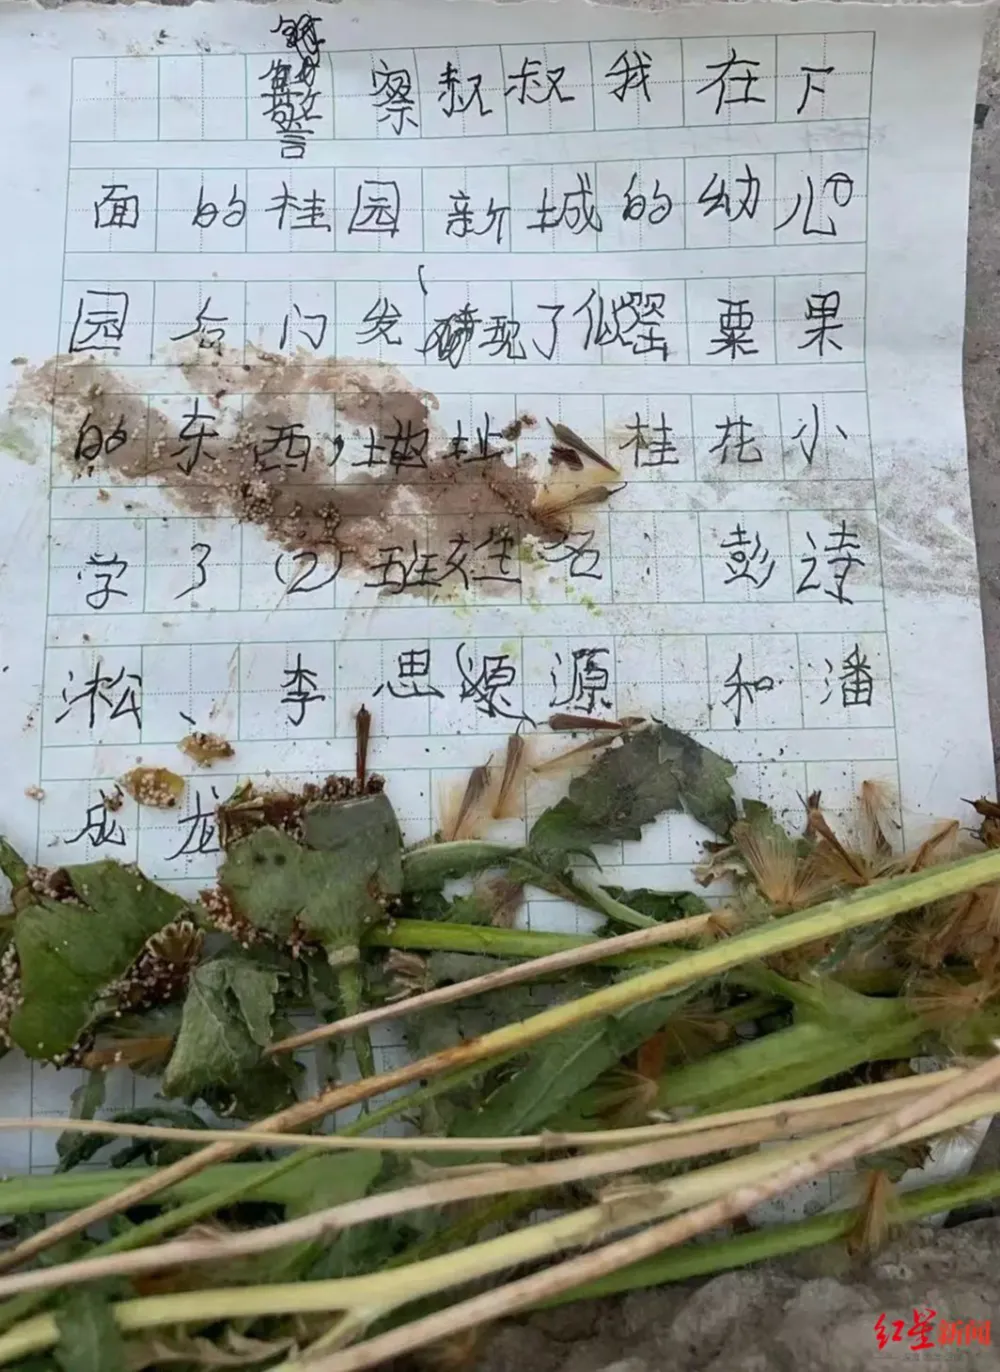 警察叔叔我在下
面的桂园新城的幼儿
园后门发现了似罂粟果
的东西，地址 桂花小
学3（2）班姓名：彭诗
淞、李思源 和潘
成龙
红星新闻